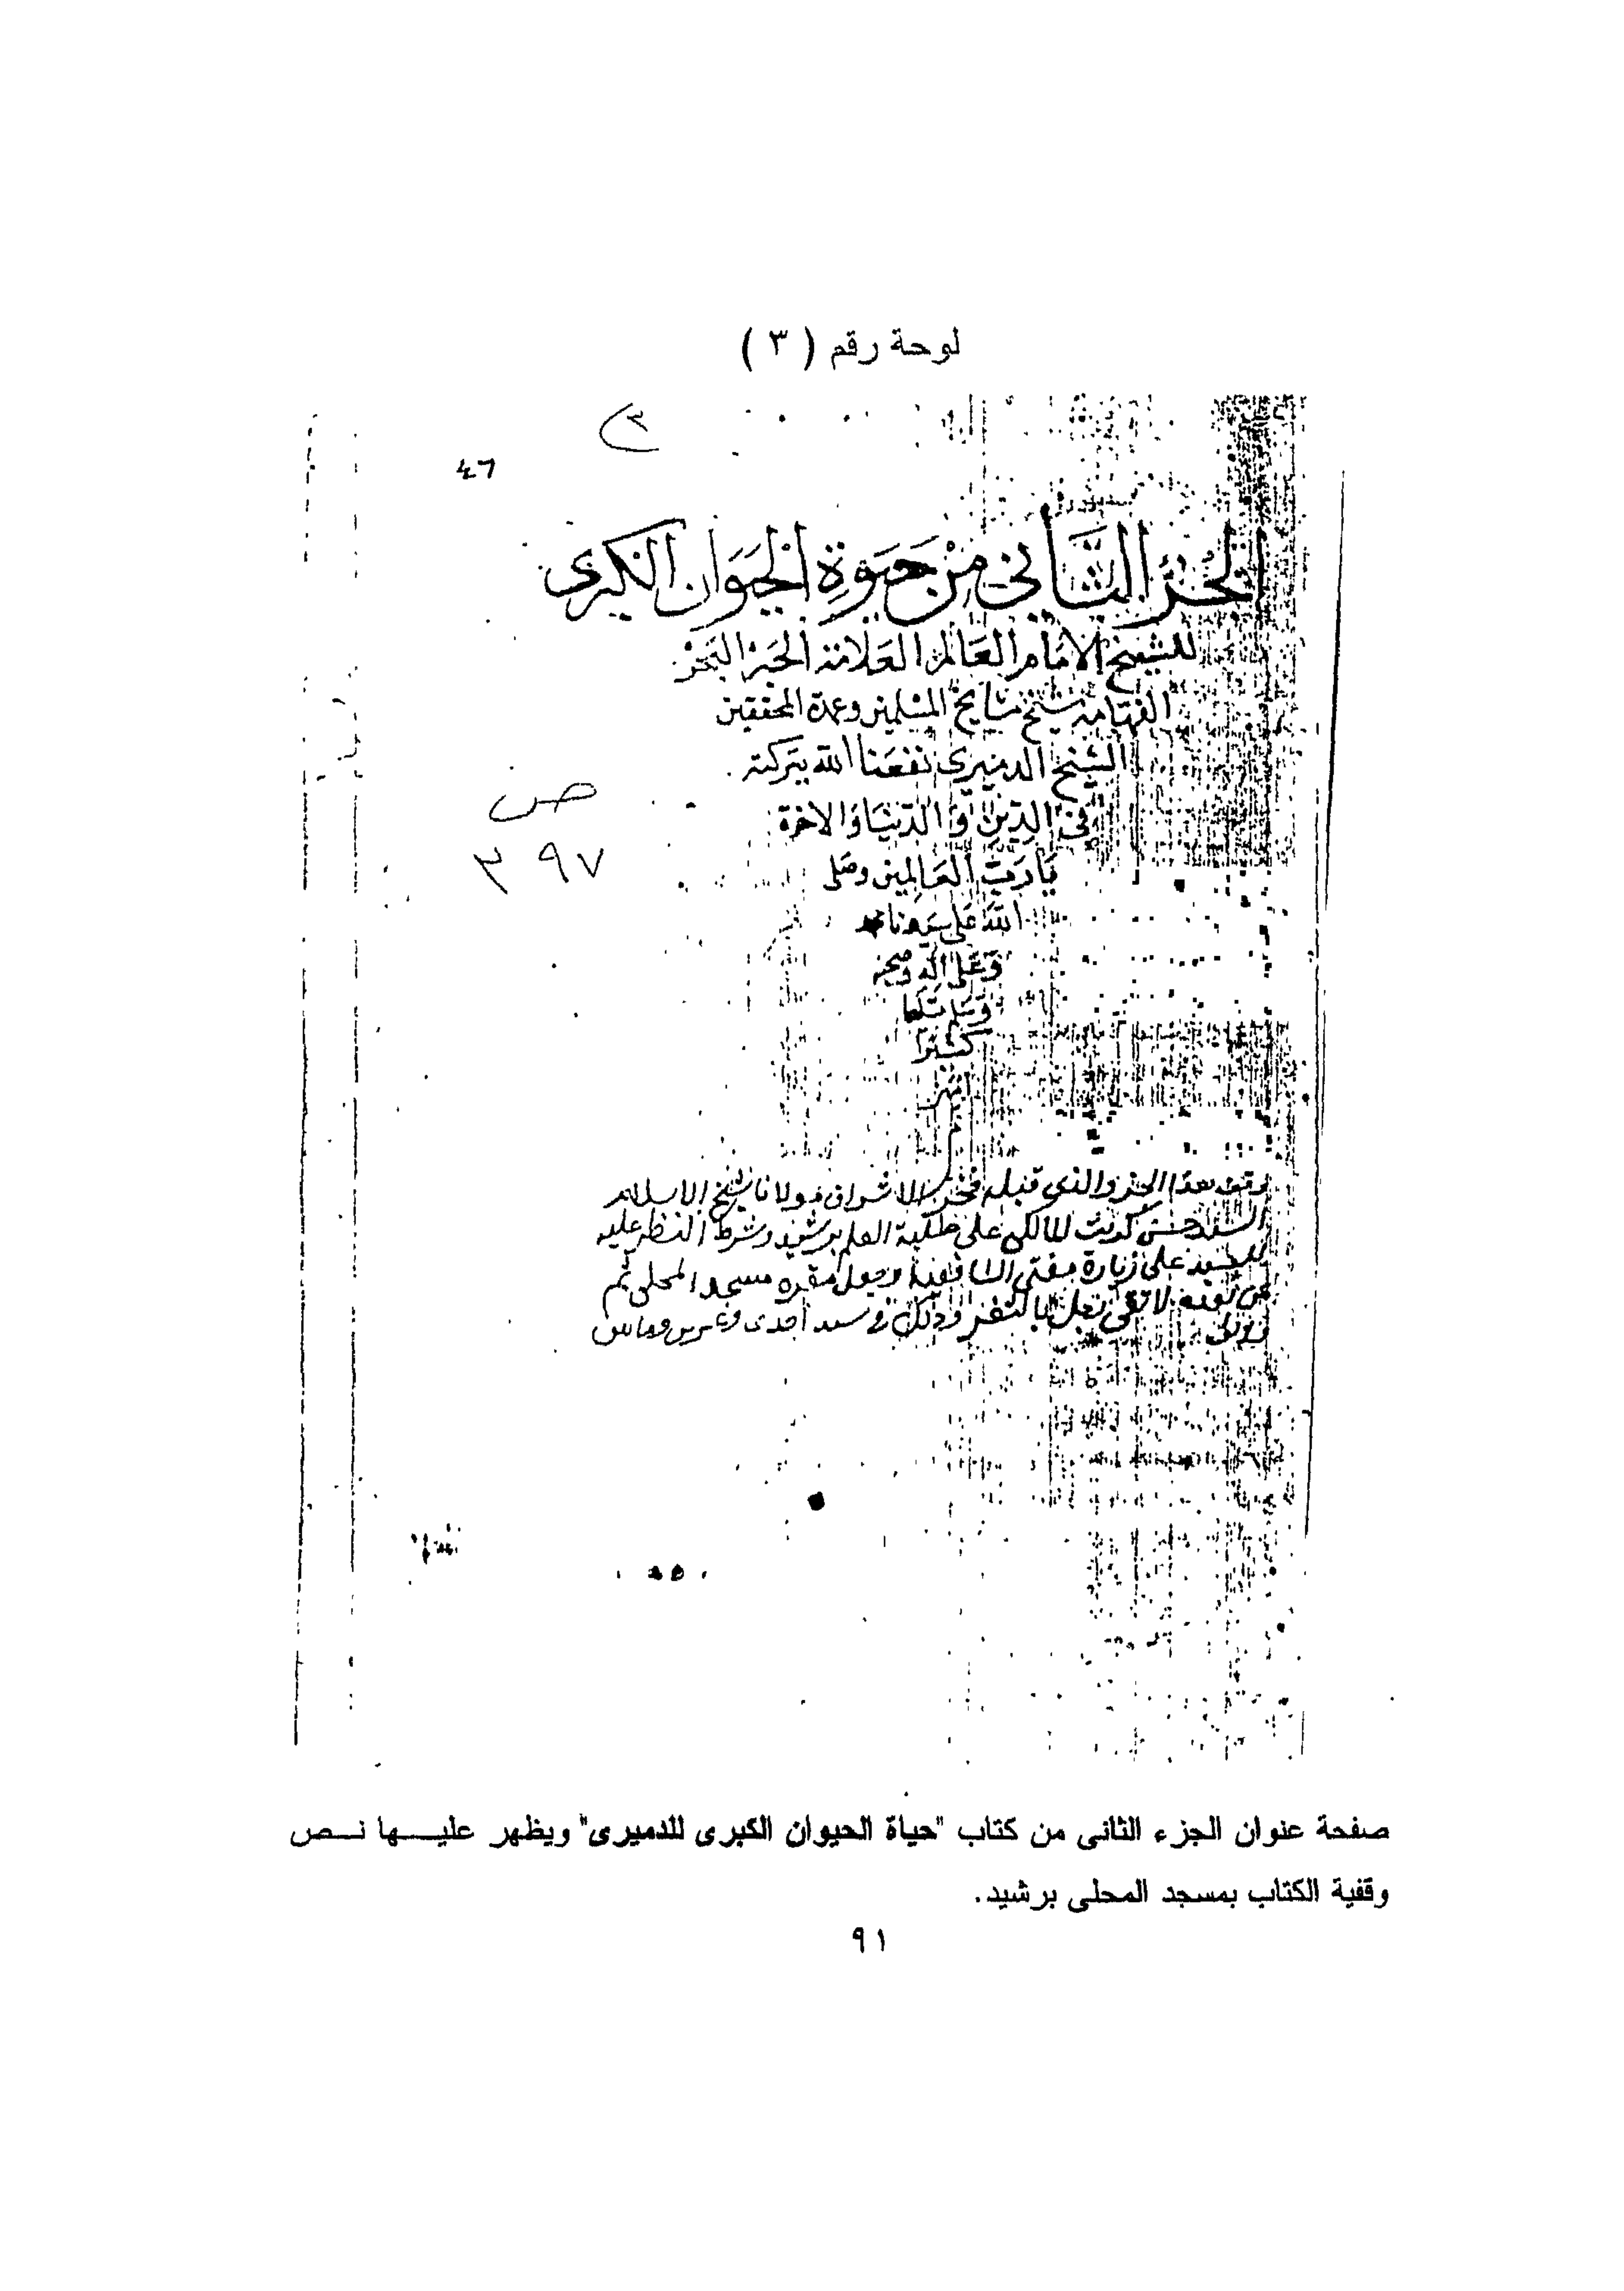 لوحة رقم ( ٣ )
٣
٤٦
الجزء الثَّاني مِنْ حَيَوةِ الحَيَوَان الكبرى
للشيخ الامَام العَالم العَلامة الحَبْر البَحْر
الفهامة شيخ مشايخ المسْلمين وعمدة المحققين
الشيخ الدميرى نفعَنا الله ببَركته
في الدين وَالدّنيَا وَالاخرة
ص
٣٩٧
يَا رَبّ العَالمين وصَلى
اللّه عَلى سَيدنا محمد
وَعَلى اله وصحبه
وَسَلم تسْلِيما
كثيرًا
امين
وقف هذا الجزو والذى قبله فخر الاشراف مولانا شيخ الاسلام
السيد حسن كريت المالكى على طلبة العلم برشيد وشرط النظر عليه
للسيد على زيارة مفتى الشافعية وجعل مقره مسجد المحلى ثم
من بعده لا تقى بالثغر وذلك فى سنة احدى وعشرين ومايتين
صفحة عنوان الجزء الثانى من كتاب "حياة الحيوان الكبرى للدميرى" ويظهر عليـــها نــص
وقفية الكتاب بمسجد المحلى برشيد.
٩١